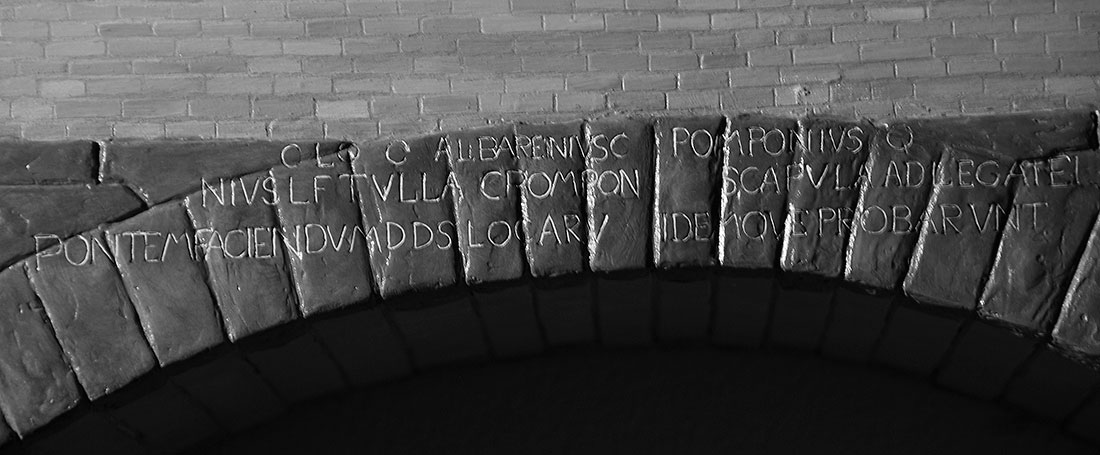 C LO C ALIBARENIVS C POMPONIVS Q
NIVS L F TVLLA C POMPON SCAPVLA AD LEGATEI
PONTEM FACIENDVM D D S LOCARV IDEMQVE PROBARVNT